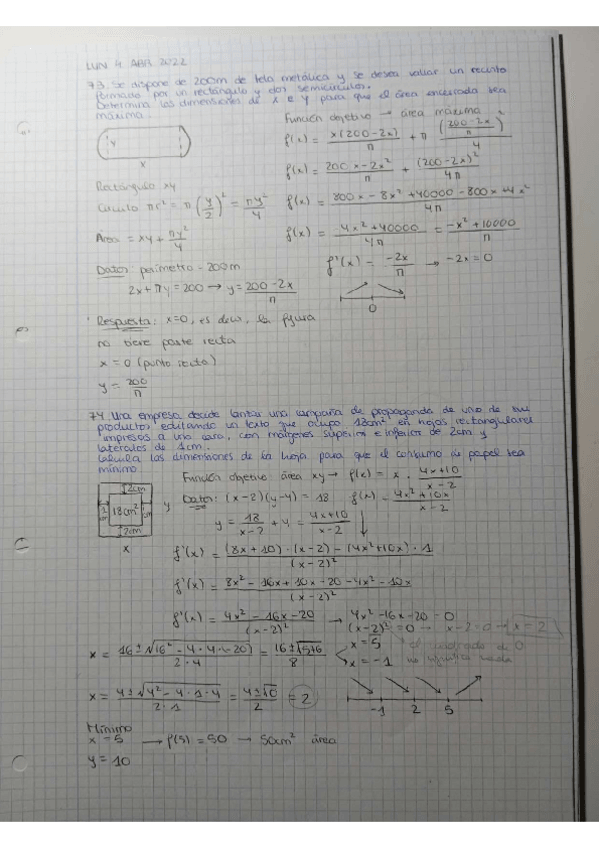 LUN 4 ABR 2022
73. Se dispone de 200m de tela metálica y se desea vallar un recinto
formado por un rectángulo y dos semicírculos.
Determina las dimensiones de x e y para que el área encerrada sea
máxima.
Función objetivo → área máxima
y
x
f(x) = x(200-2x)/π + π ((200-2x)/π)²/4
f(x) = (200x - 2x²)/π + (200-2x)²/4π
Rectángulo xy
Círculo πr² = π(y/2)² = πy²/4
f(x) = (800x - 8x² + 40000 - 800x + 4x²)/4π
Área = xy + πy²/4
f(x) = (-4x² + 40000)/4π = (-x² + 10000)/π
Datos: perímetro = 200m
f'(x) = -2x/π → -2x = 0
2x + πy = 200 → y = (200-2x)/π
0
Respuesta: x=0, es decir, la figura
no tiene parte recta
x = 0 (punto recta)
y = 200/π
74. Una empresa decide lanzar una campaña de propaganda de uno de sus
productos editando un texto que ocupa 18cm² en hojas rectangulares
impresos a una cara, con márgenes superior e inferior de 2cm y
laterales de 1cm.
Calcula las dimensiones de la hoja para que el consumo de papel sea
mínimo.
Función objetivo: área xy → f(x) = x · (4x+10)/(x-2)
2cm
18cm²
2cm
y
x
Datos: (x-2)(y-4) = 18
f(x) = (4x² + 10x)/(x-2)
y = 18/(x-2) + 4 = (4x+10)/(x-2)
f'(x) = ((8x+10)·(x-2) - (4x²+10x)·1)/(x-2)²
f'(x) = (8x² - 16x + 10x - 20 - 4x² - 10x)/(x-2)²
f'(x) = (4x² - 16x - 20)/(x-2)² → 4x² - 16x - 20 = 0
(x-2)² = 0 → x-2=0 → x=2
x = (16 ± √(16² - 4·4·(-20)))/(2·4) = (16 ± √576)/8
x = 5
x = -1
el cuadrado de 0
no significa nada
x = (4 ± √(4² - 4·1·4))/(2·1) = (4 ± √0)/2 = 2
-1 2 5
Mínimo
x = 5 → f(5) = 50 → 50cm² área
y = 10